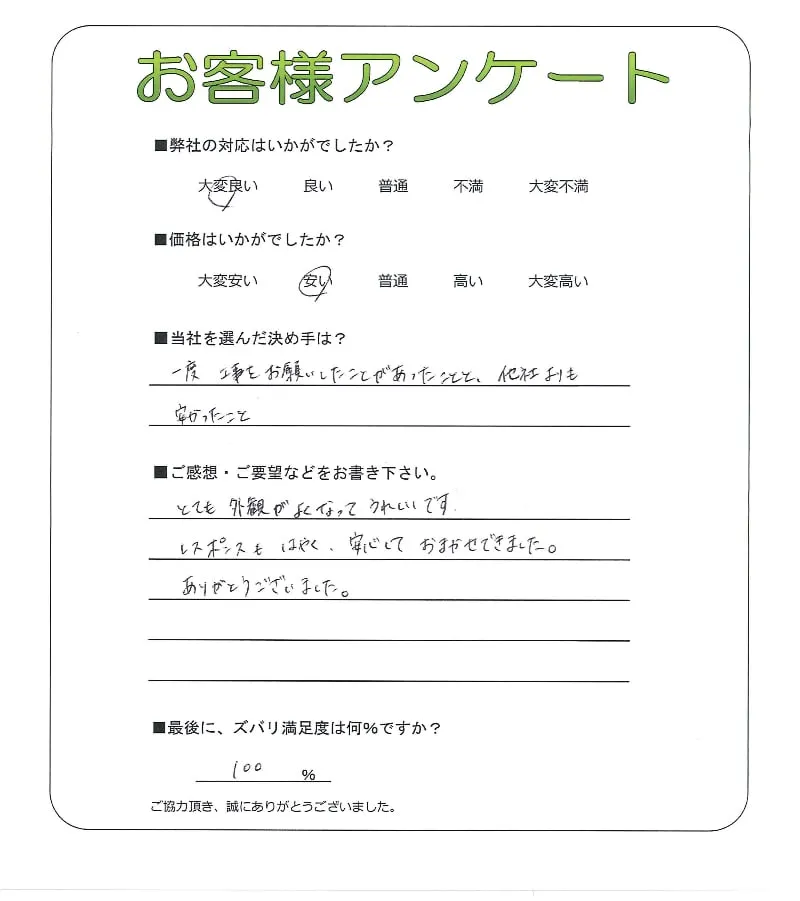 お客様アンケート
■弊社の対応はいかがでしたか？
大変良い 良い 普通 不満 大変不満
■価格はいかがでしたか？
大変安い 安い 普通 高い 大変高い
■当社を選んだ決め手は？
一度 工事をお願いしたことがあったことと、他社よりも
安かったこと
■ご感想・ご要望などをお書き下さい。
とても 外観が よくなって うれしいです.
レスポンスも はやく、安心して おまかせできました。
ありがとうございました。
■最後に、ズバリ満足度は何%ですか？
100 %
ご協力頂き、誠にありがとうございました。